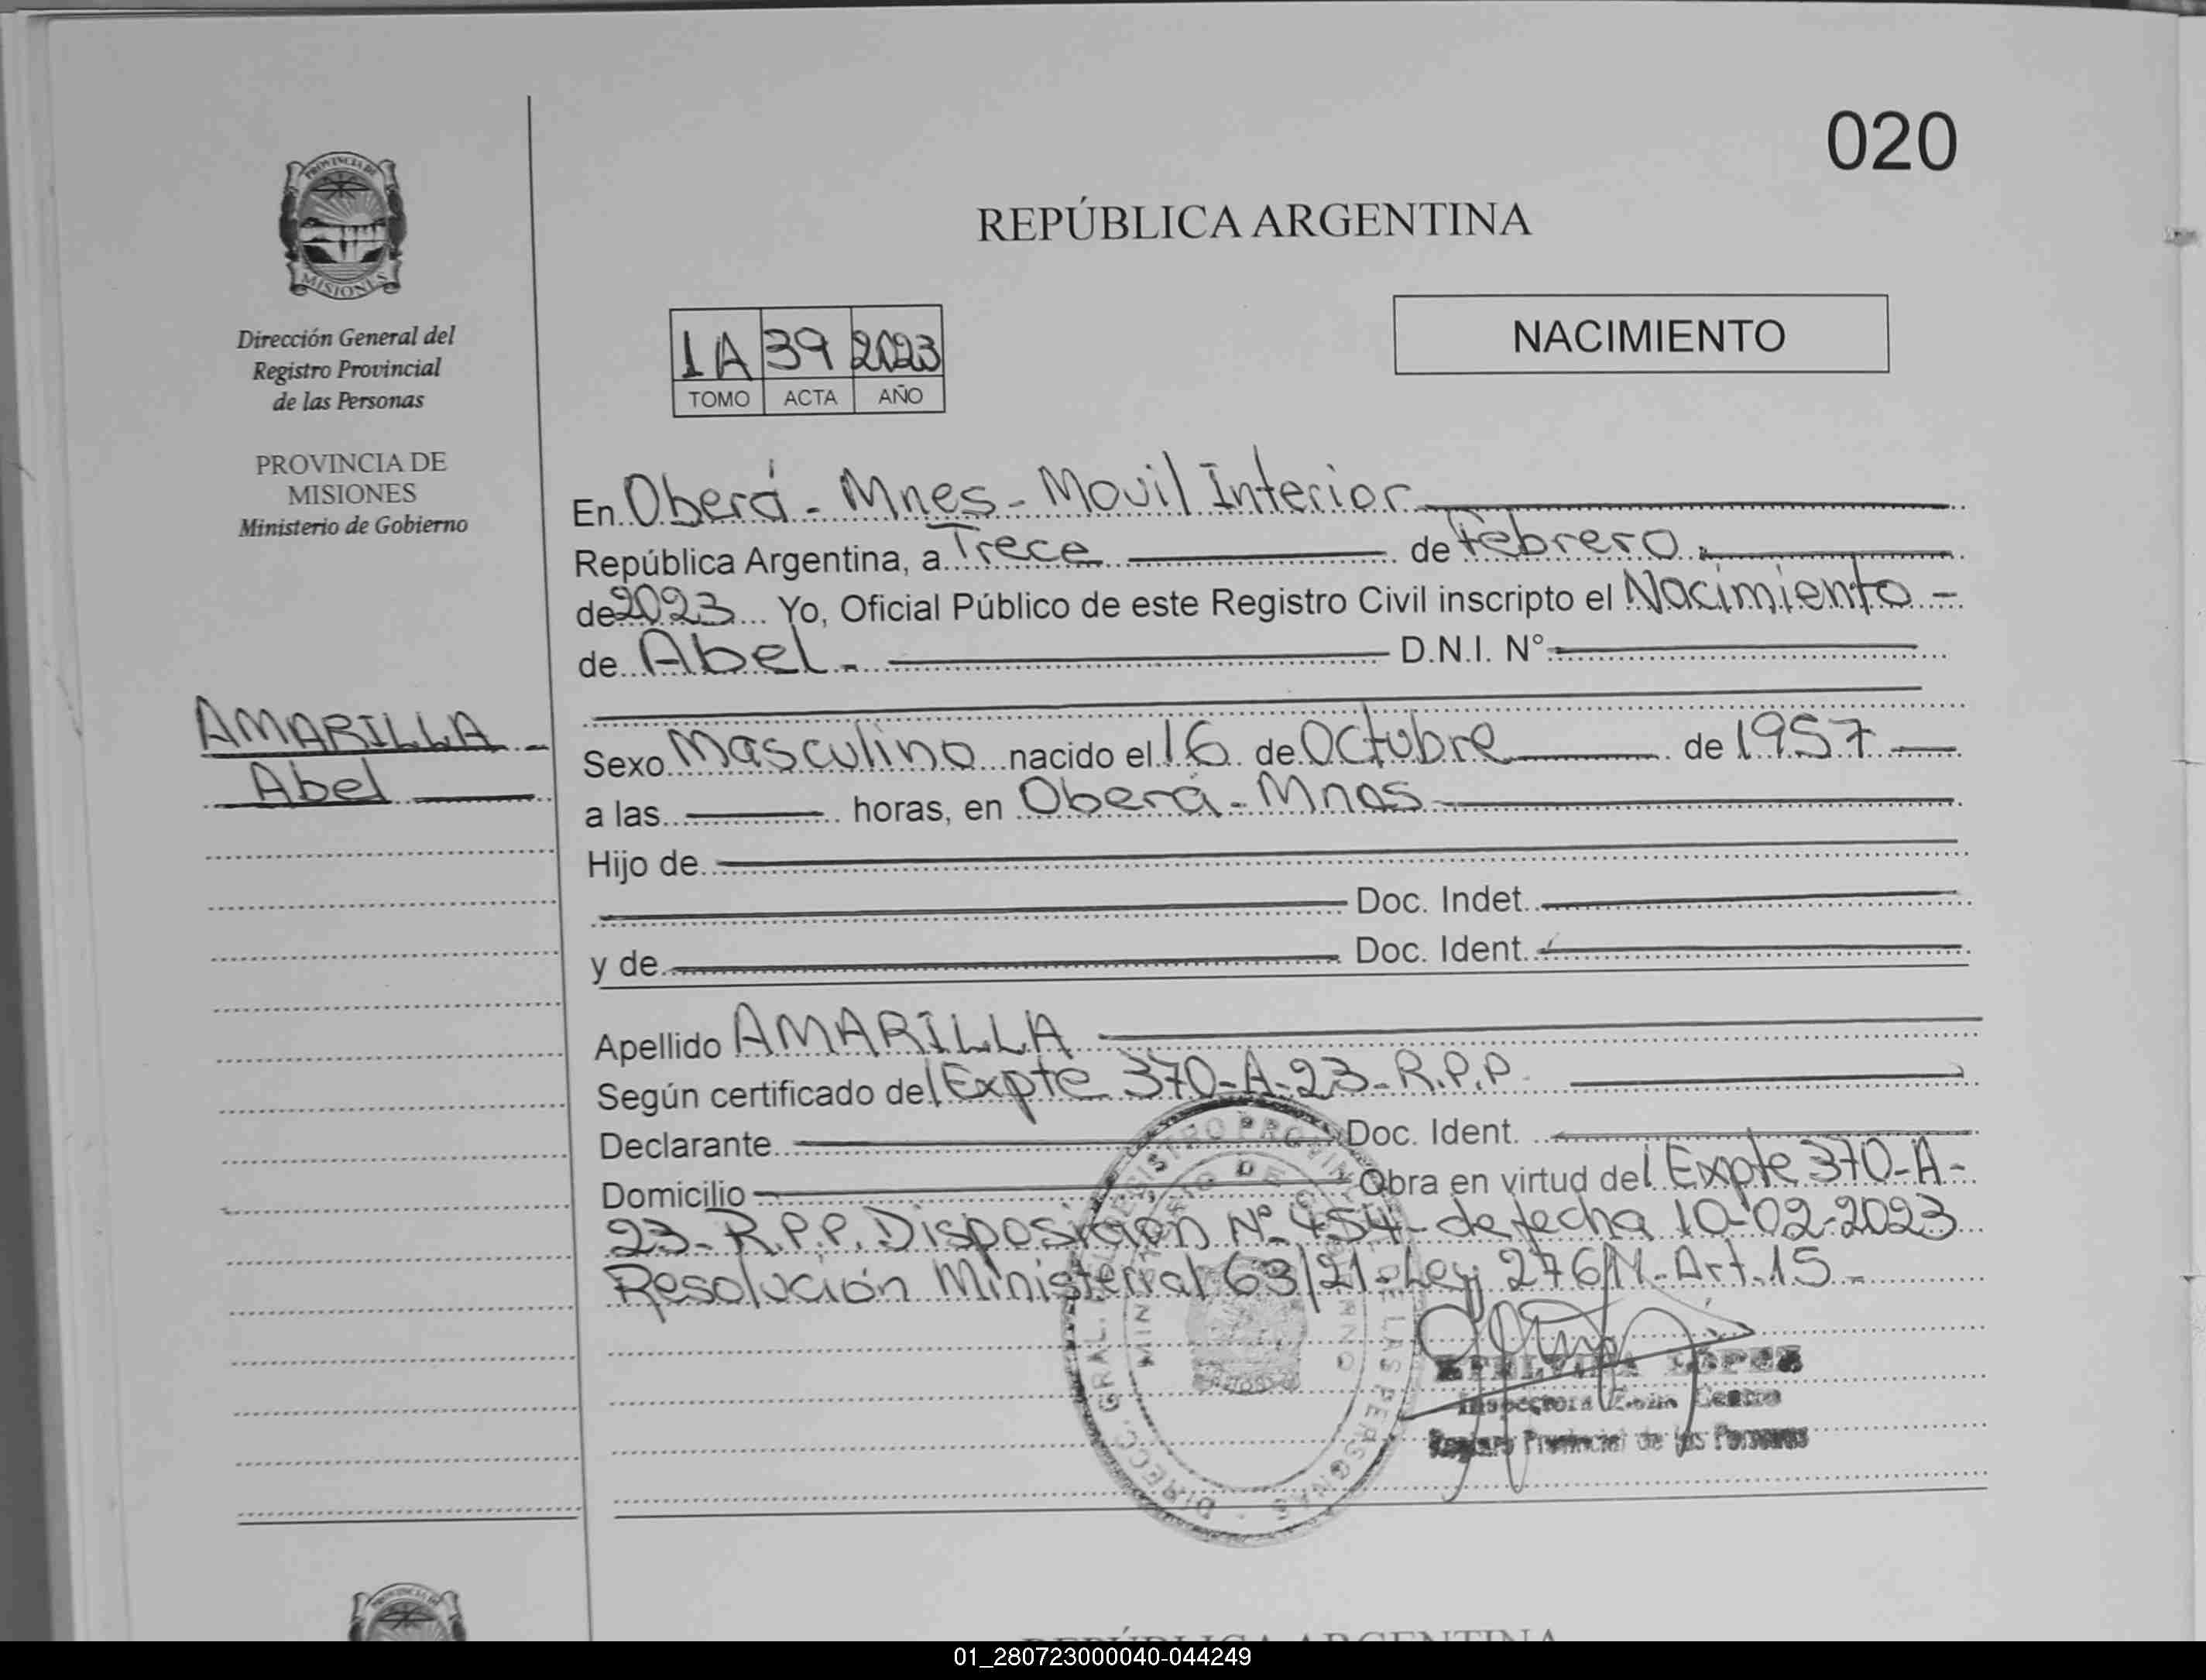 020
REPÚBLICA ARGENTINA
PROVINCIA DE
MISIONES
Dirección General del
Registro Provincial
de las Personas
PROVINCIA DE
MISIONES
Ministerio de Gobierno
1A 39 2023
TOMO ACTA AÑO
NACIMIENTO
En Oberá - Mnes - Movil Interior
República Argentina, a Trece de Febrero
de 2023 Yo, Oficial Público de este Registro Civil inscripto el Nacimiento -
de Abel - D.N.I. N°
AMARILLA -
Abel
Sexo Masculino nacido el 16 de Octubre de 1957
a las horas, en Oberá - Mnas
Hijo de
Doc. Indet.
y de Doc. Ident.
Apellido AMARILLA
Según certificado del Expte 370-A-23-R.P.P
Declarante Doc. Ident.
Domicilio Obra en virtud del Expte 370-A-
23-R.P.P. Disposición N° 454- de fecha 10-02-2023
Resolución Ministerial 63/21- Ley 276/M-Art.15 -
DIRECC. GRAL. REGISTRO PROVINCIAL DE LAS PERSONAS
MINISTERIO DE GOBIERNO
LOPEZ
Inspectora Zona Centro
Registro Provincial de las Personas
REPÚBLICA ARGENTINA
01_280723000040-044249